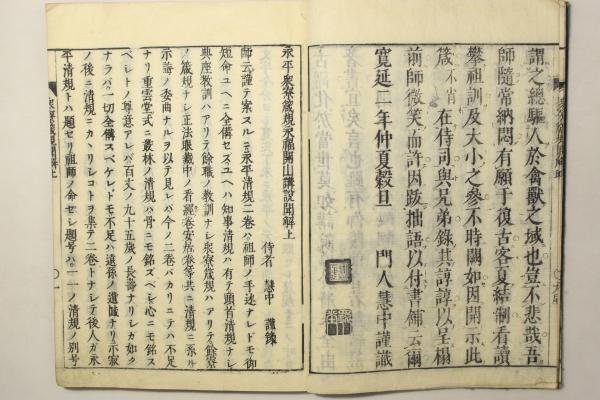 謂之總驅人於禽獸之域也豈不悲哉吾
師隨常納悶有願于復古客夏結制看讀
攀祖訓及大小之參不時闢如因開示此
箴不肖在侍司與兄弟錄其諄諄以呈榻
前師微笑而許因跋拙語以付書舗云爾
寬延二年仲夏穀旦 門人慧中謹識
永平衆寮箴規永福開山講說聞解上
侍者 慧中 謹錄
師云謹テ案スルニ永平清規二卷ハ祖師ノ手述ナレドモ御
短命ユヘニ全備セズユヘハ知事清規ハ有テ頭首清規ナシ
典座教訓ハアリテ餘職ノ教訓ナシ衆寮箴規ハアリテ餘寮
ノ箴規ナシ正法眼藏中ノ看經卷安居卷等共ニ清規ニ系ル
示誨ノ委曲ナルヲ以テ見レバ今ノ二卷バカリニテハ不足
ナリ重雲堂式ニ叢林ノ清規ハ骨ニモ銘ズベシ心ニモ銘ス
ベシトノ尊意アレバ百丈ノ九十五歳ノ長壽ナリシカ如ク
ナラバ一切全備スベケレドモ不足ハ遠孫ノ遺憾ナリ示寂
ノ後ニ清規ニカヽリシコトヲ集テ二卷トナシテ後人ガ永
平清規トハ題セリ祖師ノ命セシ題号ハ一一ノ清規ノ別号
衆寮箴規聞解上